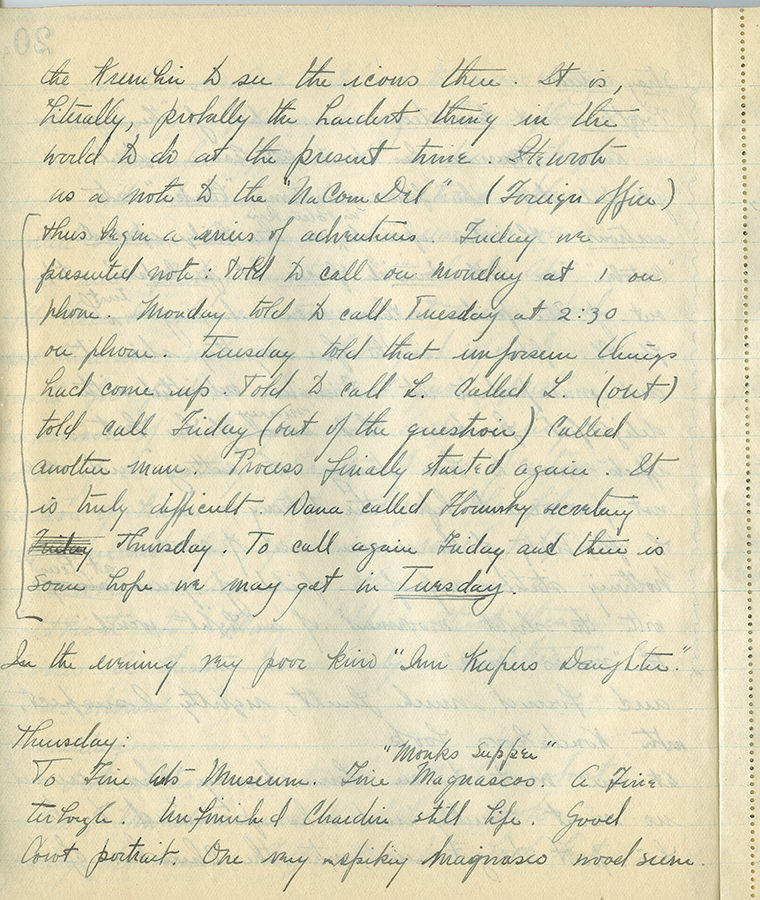 the Kremlin to see the icons there. It is,
literally, probally the hardest thing in the
world to do at the present time. He wrote
us a note to the "NaComDel" (Foreign office)
thus begin a series of adventures. Friday we
presented note: Told to call on Monday at 1 on
phone. Monday told to call Tuesday at 2:30
on phone. Tuesday told that unforseen things
had come up. Told to call L. Called L. (out)
told call Friday (out of the question) Called
another man. Process finally started again. It
is truly difficult. Dana called secretary
Friday Thursday. To call again Friday and there is
some hope we may get in Tuesday.
In the evening very poor kino "Inn Keepers Daughter."
Thursday:
"Monks Supper"
To Fine Arts Museum. Fine Magnascos. A Fine
terborgh. Unfinished Chardin still life. Good
portrait. One very spikey Magnasco wood scene.